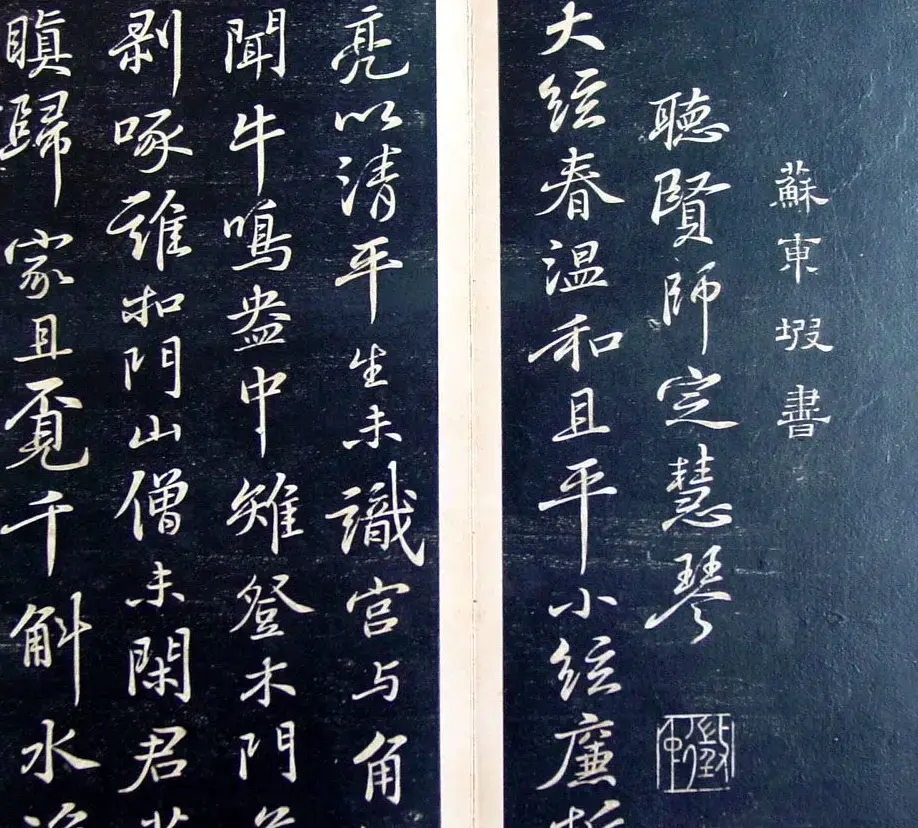 蘇東坡書
聽賢師定慧琴
大絃春温和且平小絃廉
亮以清平生未識宫与角
聞牛鳴盎中雉登木門
剥啄誰扣門山僧未閑君
瞋歸家且覓千斛水